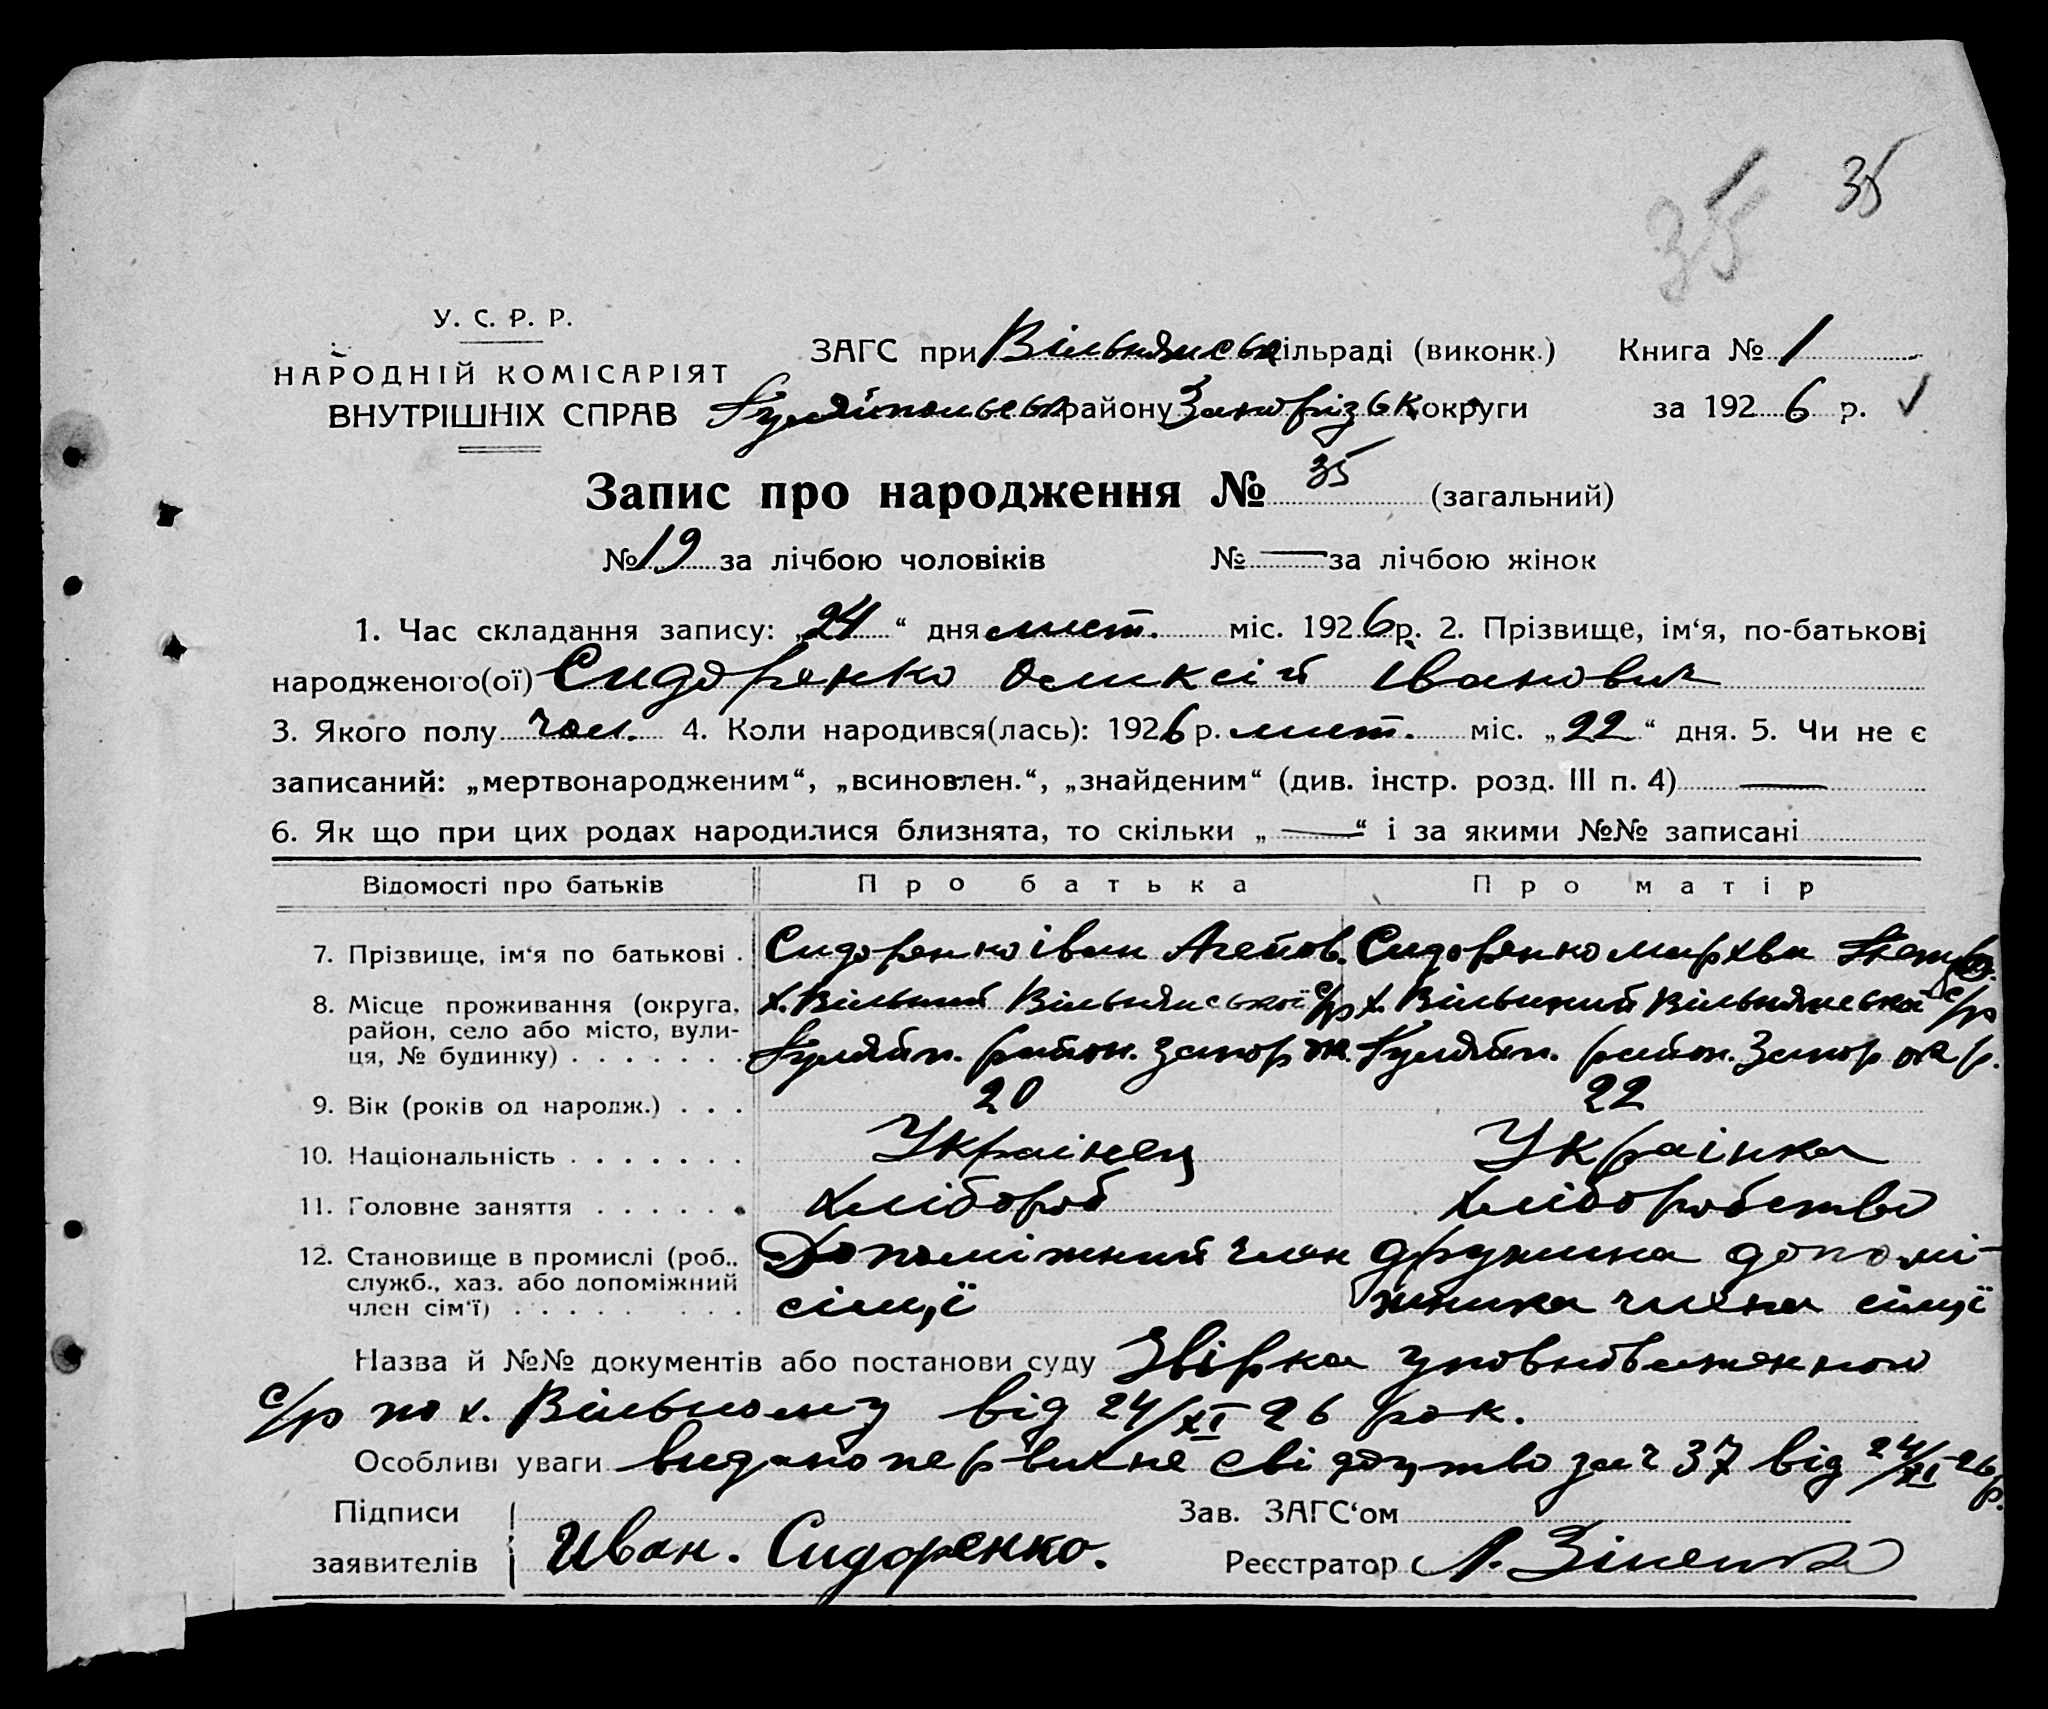 35 35
У. С. Р. Р.
ЗАГС при Вільнянськ сільраді (виконк.) Книга № 1
НАРОДНІЙ КОМІСАРІЯТ
ВНУТРІШНІХ СПРАВ Гуляйпольськ району Запорізьк округи за 1926 р.
Запис про народження № 35 (загальний)
№ 19 за лічбою чоловіків № — за лічбою жінок
1. Час складання запису: „24“ дня лист. міс. 1926 р. 2. Прізвище, ім‘я, по-батькові
народженого(ої) Сидорянко Оликсій Іванович
3. Якого полу чол. 4. Коли народився(лась): 1926 р. лист. міс. „22“ дня. 5. Чи не є
записаний: „мертвонародженим“, „всиновлен.“, „знайденим“ (див. інстр. розд. III п. 4) —
6. Як що при цих родах народилися близнята, то скільки „—“ і за якими №№ записані
Відомості про батьків Про батька Про матір
7. Прізвище, ім‘я по батькові . Сидорянко Іван Агейов. Сидорянко Мархва
8. Місце проживання (округа, х. Вільний Вільнянської с/р х. Вільний Вільнянська с/р
район, село або місто, вули-
ця, № будинку) . . . . . . . Гуляйп. район. Запор ок. Гуляйп. район. Запор окр.
9. Вік (років од народж.) . . . 20 22
10. Національність . . . . . . . Украінец Украінка
11. Головне заняття . . . . . . хлібороб хліборобство
12. Становище в промислі (роб.. Допоміжний член дружина допомі-
служб., хаз. або допоміжний
член сім‘ї) . . . . . . . . сімҷї жника члена сімцї
Назва й №№ документів або постанови суду Звірка уповноваженного
с/р по х. Вільному від 24/XI 26 рок.
Особливі уваги видано первисне свідоцтво за ч 37 від 24/XI 26 р.
Підписи Зав. ЗАГС‘ом
заявителів Иван. Сидоренко. Реєстратор Л. Зіненко